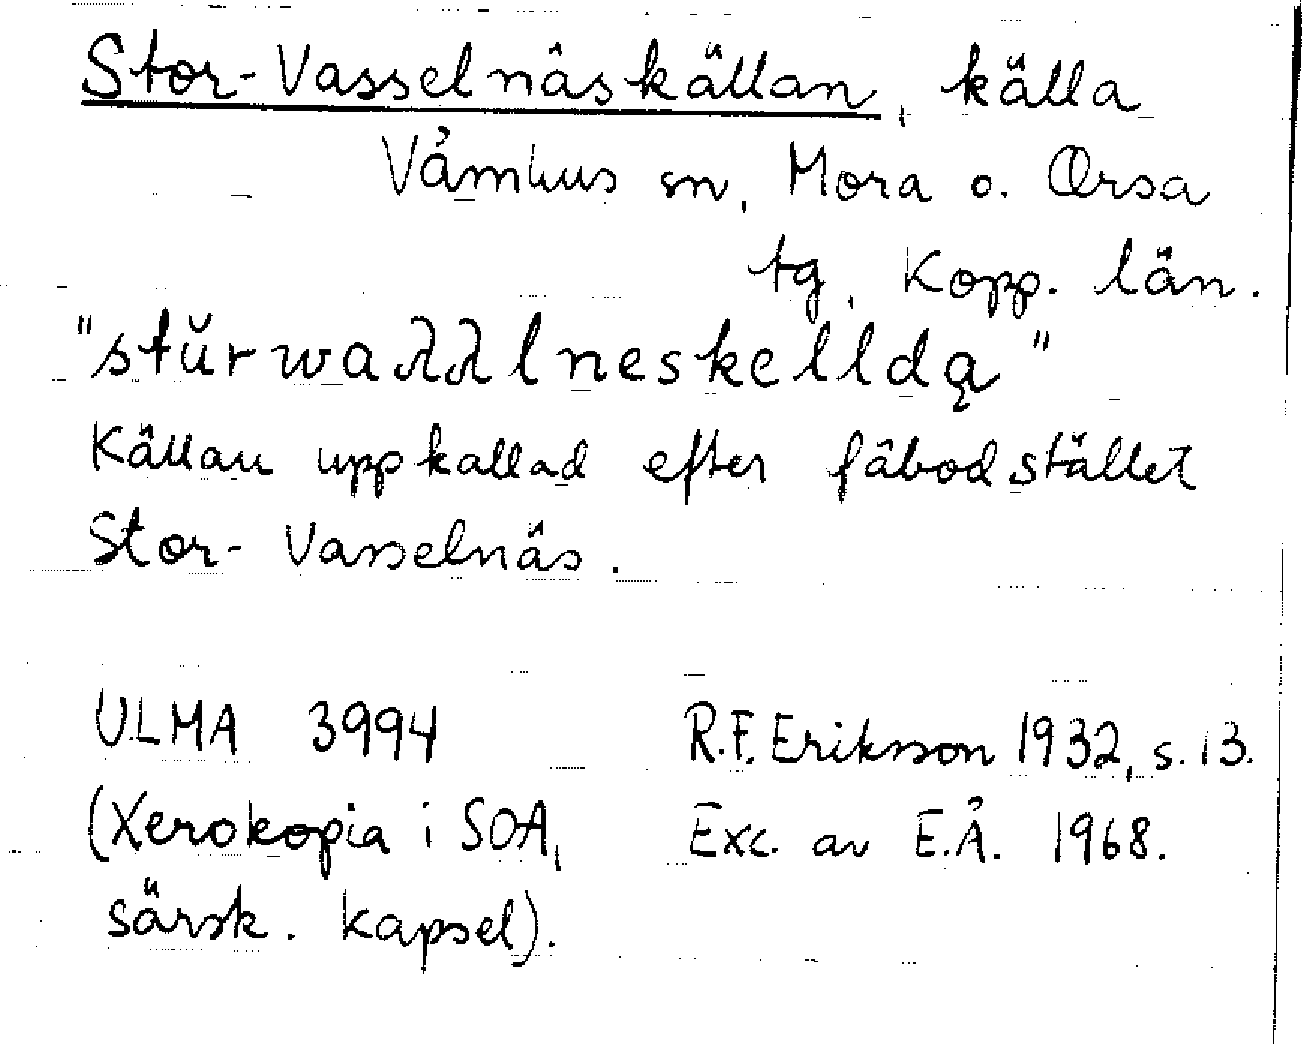 Stor-Vasselnäskällan, källa
Våmhus sn, Mora o. Orsa
tg, Kopp. län.
"stŭrwaλλlneskelldą"
Källan uppkallad efter fäbodstället
Stor-Vasselnäs.
ULMA 3994 R.F. Eriksson 1932, s. 13.
(Xerokopia i SOA, Exc. av E.Å. 1968.
särsk. kapsel).